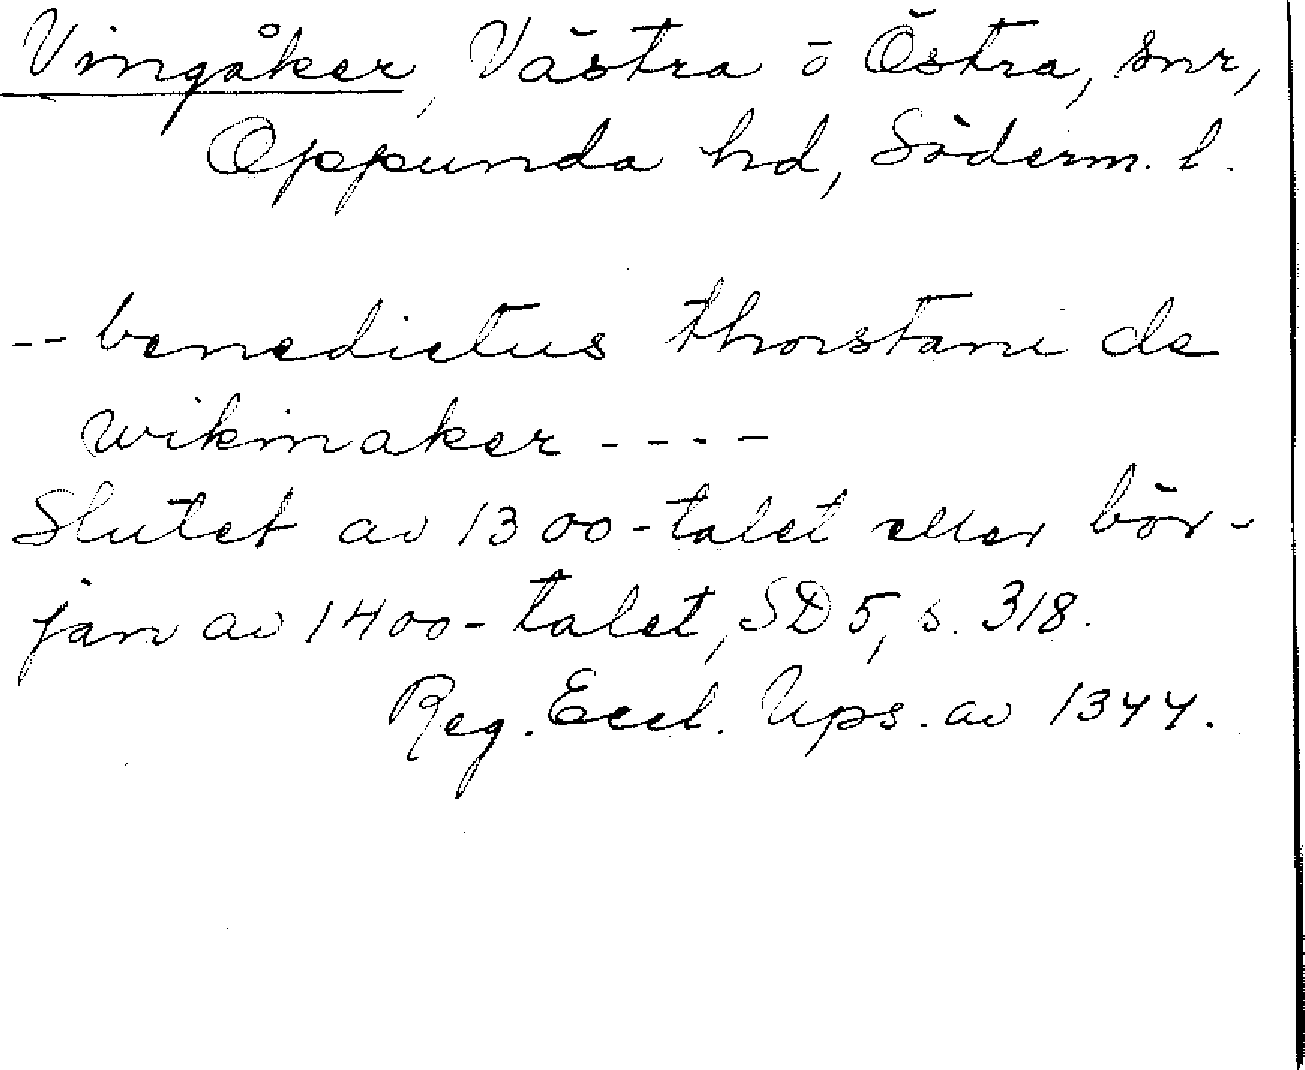 Vingåker, Västra o Östra, snr,
Oppunda hd, Söderm. l.
-- benedictus thorstani de
wikinaker ----
Slutet av 1300-talet eller bör-
jan av 1400-talet, SD 5, s. 318.
Reg. Eccl. Ups. av 1344.